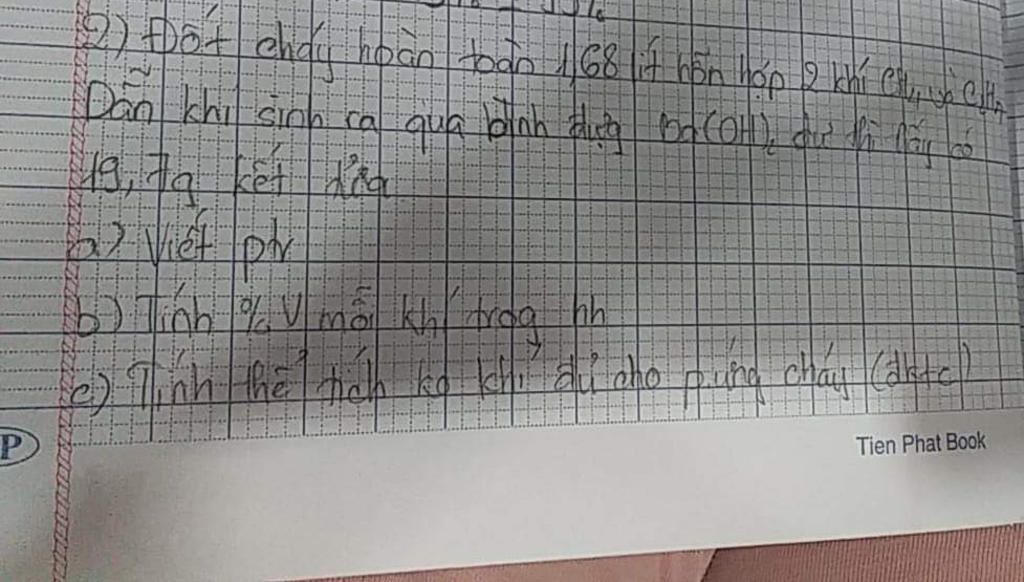 2) Đốt cháy hoàn toàn 1,68 lít hỗn hợp 2 khí CH₄ và C₂H₄
Dẫn khí sinh ra qua bình đựng Ba(OH)₂ dư thì thấy có
19,7g kết tủa
a) Viết ptr
b) Tính % V mỗi khí trog hh
c) Tính thể tích kg khí đủ cho p.ứng cháy (đktc)
P
Tien Phat Book